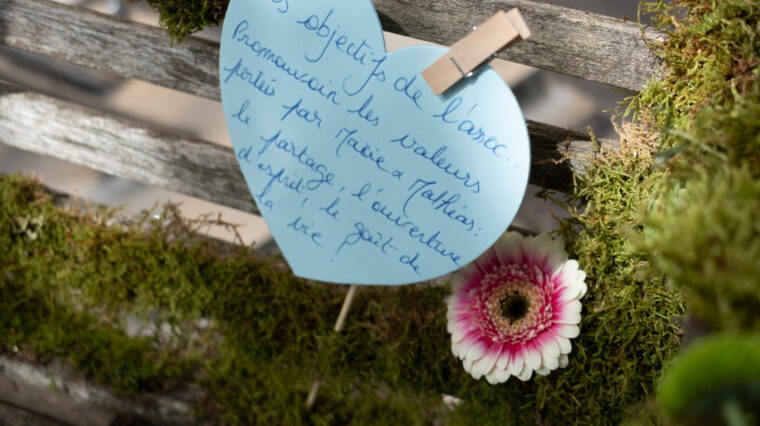 objectifs de l'asso...
Promouvoir les valeurs
portées par Marie & Mathias:
le partage, l'ouverture
d'esprit, le goût de
la vie!